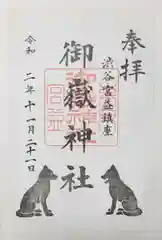 奉拝
渋谷宮益鎮座
御嶽神社
令和二年十一月二十一日